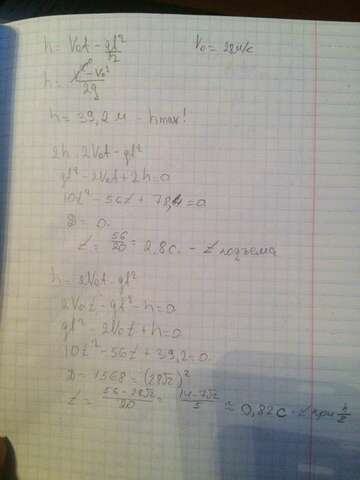 h = V₀t - gt²/2    V₀ = 28 м/с
h = v² - V₀²/2g
h = 39,2 м - hmax!
2h = 2V₀t - gt²
gt² - 2V₀t + 2h = 0
10t² - 56t + 78,4 = 0
D = 0.
t = 56/20 = 2,8 с. - t подъема
h = 2V₀t - gt²
2V₀t - gt² - h = 0
gt² - 2V₀t + h = 0
10t² - 56t + 39,2 = 0.
D = 1568 = (28√2)²
t = 56 - 28√2/20 = 14 - 7√2/5 ≈ 0,82 с - t при h/2